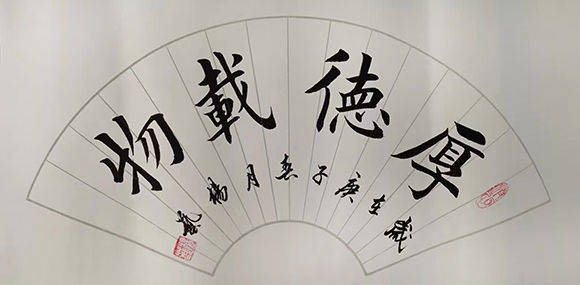 厚德載物
歲在庚子春月